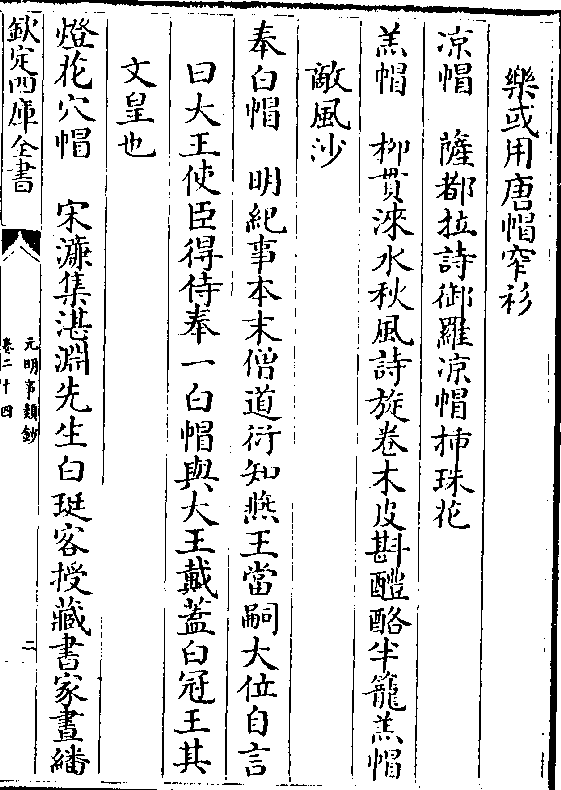 樂或用唐帽窄衫
凉帽　薩都拉詩御羅凉帽揷珠花
羔帽　柳貫淶水秋風詩旋卷木皮斟醴酪半籠羔帽
敵風沙
奉白帽　明紀事本末僧道衍知燕王當嗣大位自言
曰大王使臣得侍奉一白帽與大王戴葢白冠王其
文皇也
燈花穴帽　宋濂集湛淵先生白珽客授藏書家晝繙
欽定四庫全書
元明事類鈔
卷二十四
二